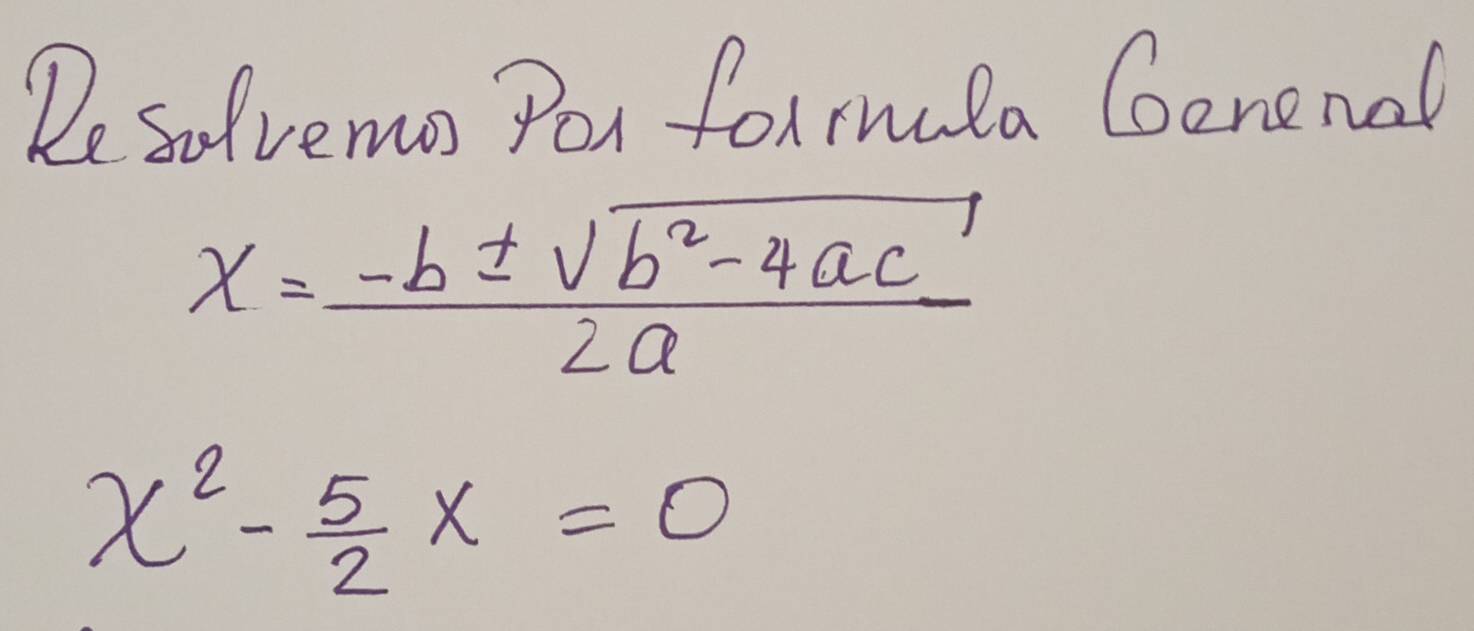 Resolvemos Por formula General
x = -b ± √b² - 4ac / 2a
x² - 5/2 x = 0